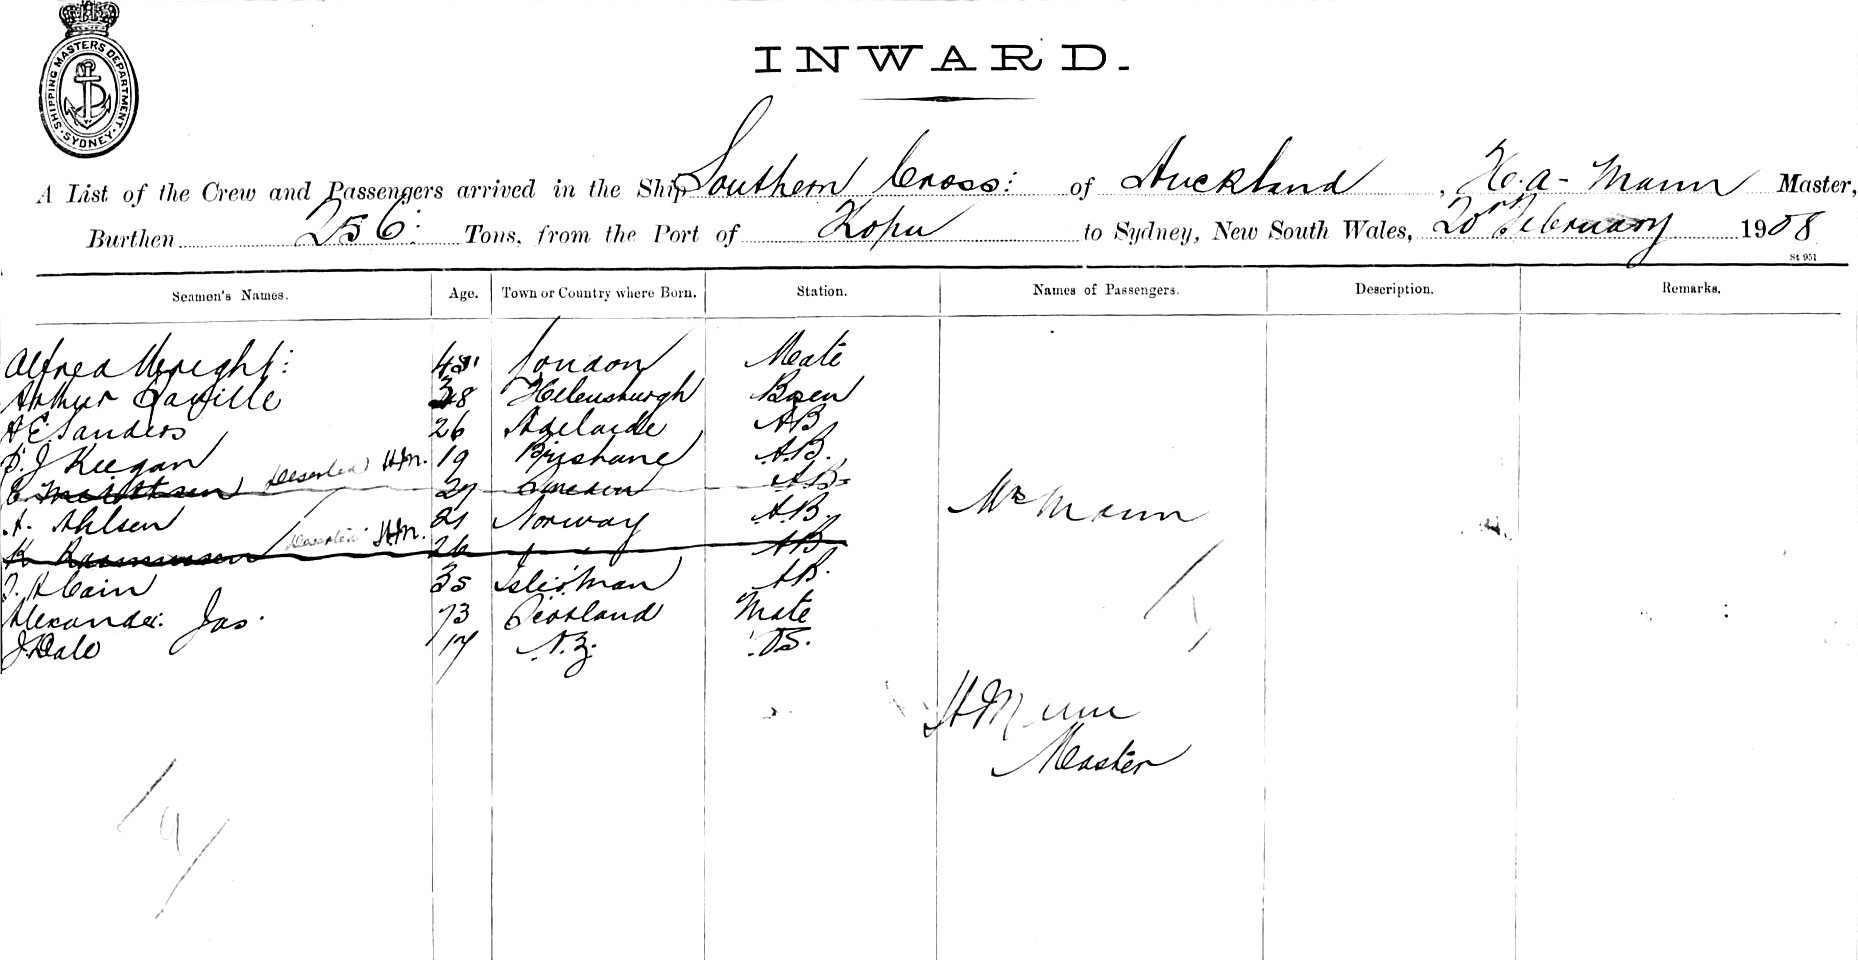 SHIPPING MASTERS DEPARTMENT · SYDNEY ·
INWARD.
A List of the Crew and Passengers arrived in the Ship Southern Cross: of Auckland, H. A- Mann Master,
Burthen 256: Tons, from the Port of Kopu to Sydney, New South Wales, 20 February 1908
St 951
Seamen's Names. Age. Town or Country where Born. Station. Names of Passengers. Description. Remarks.
Alfred Wright: London Mate
Arthur Saville 38 Helensburgh Bosen
A E Sanders 26 Adelaide AB
J Keegan 19 Brisbane A.B.
E. Deserted H.M. 27 Sweden A.B.
A. Ahlsen 21 Norway A.B.
Mrs Mann
K Rasmussen Deserted H.M. 26 AB
Cain 35 Isle o' Man AB.
Alexander: Jas. 73 Scotland Mate
J Dale 17 N.Z. O.S.
H Mann
Master
9